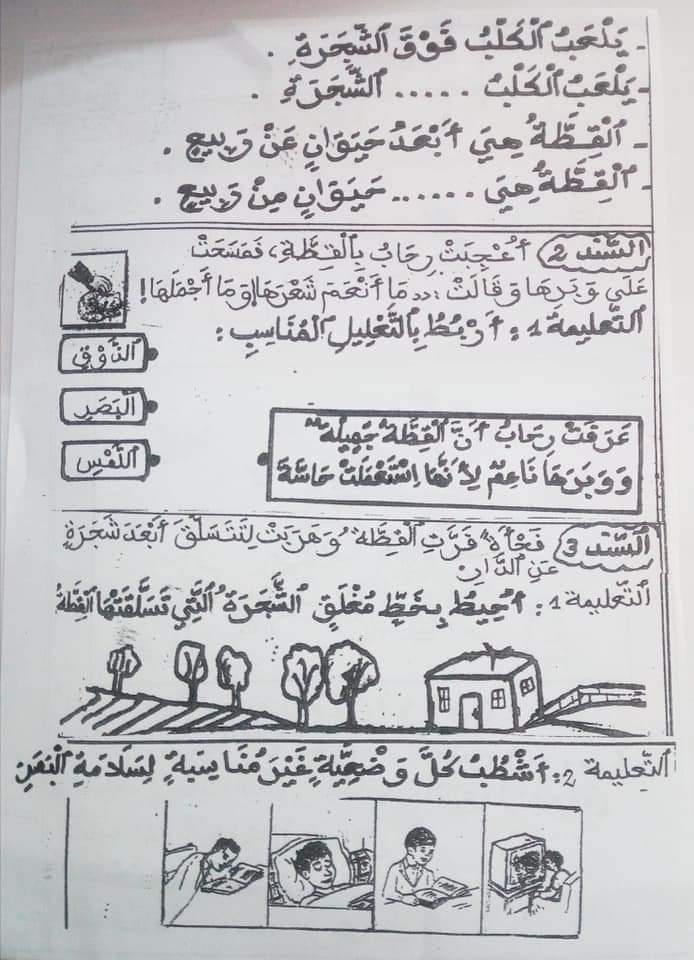 - يَلْعَبُ ٱلْكَلْبُ فَوْقَ ٱلشَّجَرَةِ .
- يَلْعَبُ ٱلْكَلْبُ ...... ٱلشَّجَرَةِ .
- ٱلْقِطَّةُ هِيَ أَبْعَدُ حَيَوَانٍ عَنْ وَبِيعٍ .
- ٱلْقِطَّةُ هِيَ ...... حَيَوَانٍ مِنْ وَبِيعٍ .
ٱلسَّنَد 2 أُعْجِبَتْ رِحَابُ بِٱلْقِطَّةِ، فَمَسَحَتْ
عَلَى وَبَرِهَا وَقَالَتْ : (( مَا أَنْعَمَ شَعْرَهَا وَمَا أَجْمَلَهَا !
ٱلتَّعْلِيمَة 1 : أَرْبُطُ بِٱلتَّعْلِيلِ ٱلْمُنَاسِبِ :
ٱلذَّوْقِ
ٱلْبَصَرِ
ٱللَّمْسِ
عَرَفَتْ رِحَابُ أَنَّ ٱلْقِطَّةَ جَمِيلَةٌ
وَوَبَرَهَا نَاعِمٌ لِأَنَّهَا ٱسْتَعْمَلَتْ حَاسَّةَ
ٱلسَّنَد 3 فَجْأَةً فَرَّتِ ٱلْقِطَّةُ وَهَرَبَتْ لِتَتَسَلَّقَ أَبْعَدَ شَجَرَةٍ
عَنِ ٱلدَّارِ
ٱلتَّعْلِيمَة 1 : أُحِيطُ بِخَطٍّ مُغْلَقٍ ٱلشَّجَرَةَ ٱلَّتِي تَسَلَّقَتْهَا ٱلْقِطَّةُ
ٱلتَّعْلِيمَة 2 : أَشْطُبُ كُلَّ وَضْعِيَّةٍ غَيْرَ مُنَاسِبَةٍ لِسَلَامَةِ ٱلْبَصَرِ